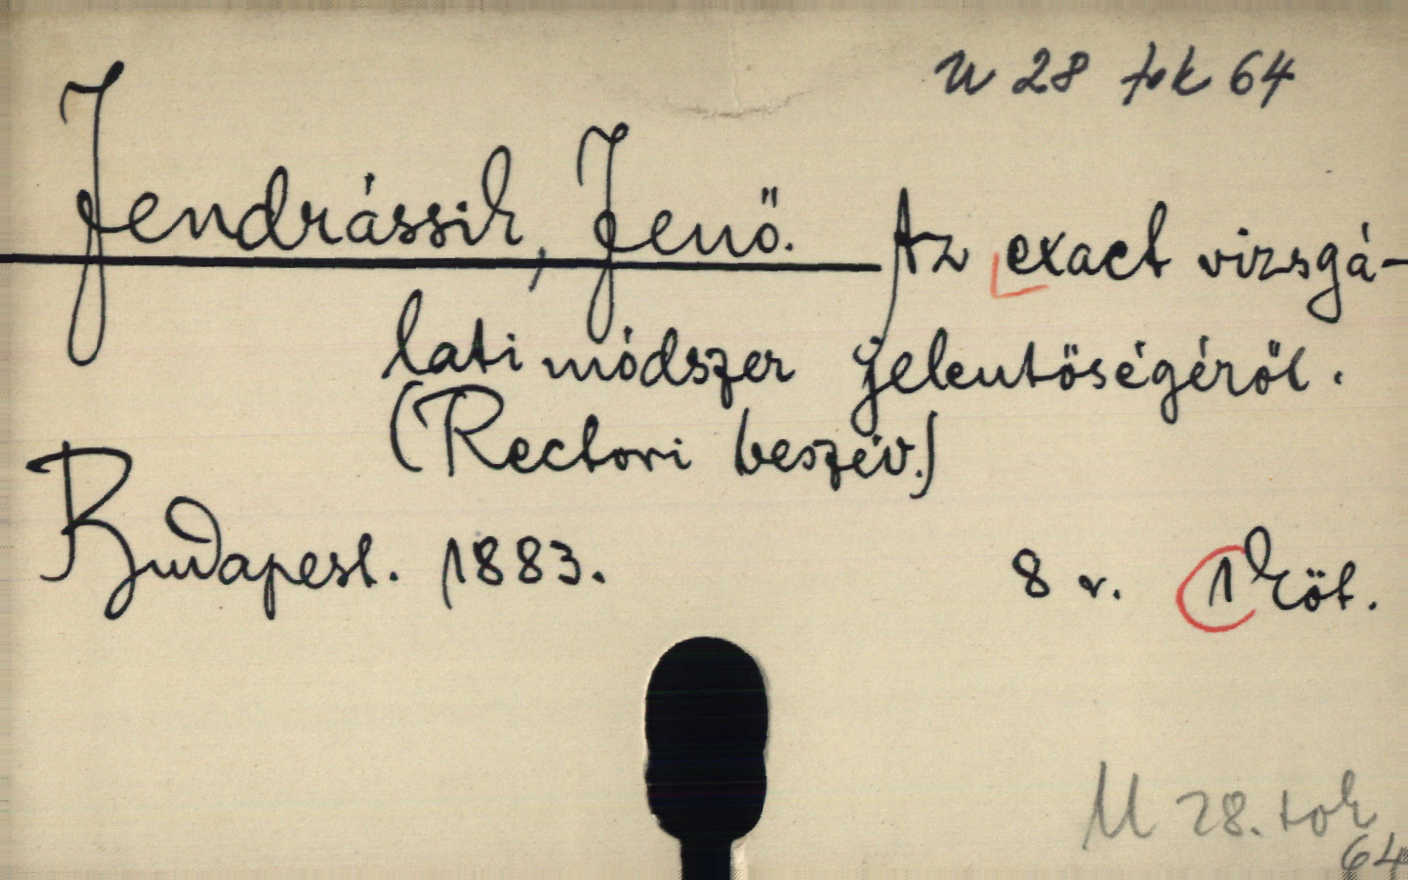 U 28 tok 64
Jendrássik, Jenő. Az exact vizsgá-
lati módszer jelentőségéről.
(Rectori beszéd.)
Budapest. 1883. 8 r. 1 köt.
U 28. tok
64